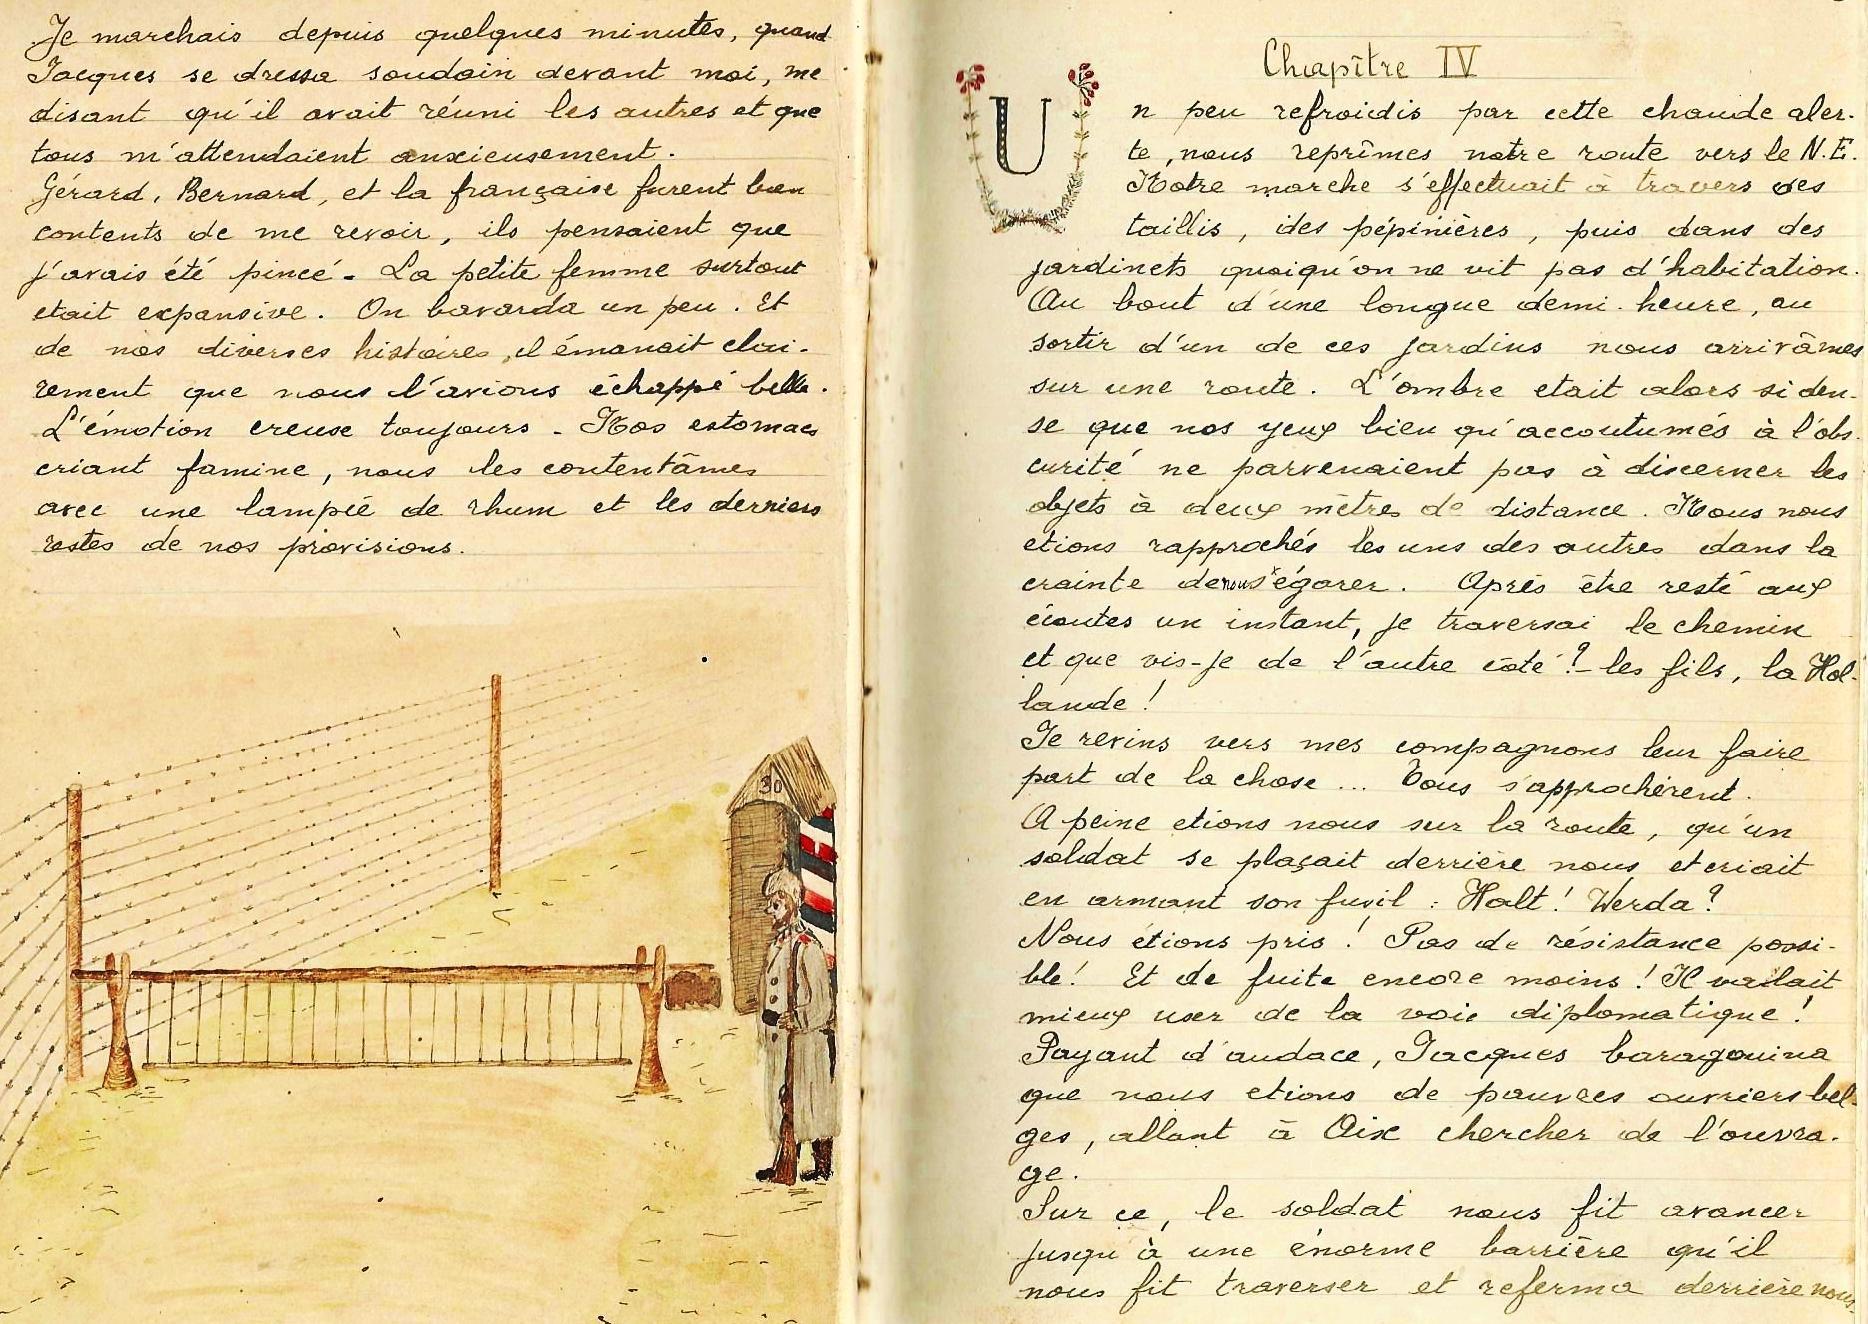 Je marchais depuis quelques minutes, quand
Jacques se dressa soudain devant moi, me
disant qu'il avait réuni les autres et que
tous m'attendaient anxieusement.
Gérard, Bernard, et la française furent bien
contents de me revoir, ils pensaient que
j'avais été pincé - La petite femme surtout
etait expansive. On bavarda un peu. Et
de nos diverses histoires, il émanait clai-
rement que nous l'avions échappé belle.
L'émotion creuse toujours - Nos estomacs
criant famine, nous les contentâmes
avec une lampée de rhum et les derniers
restes de nos provisions.
30
Chapître IV
Un peu refroidis par cette chaude aler-
te, nous reprîmes notre route vers le N.E.
Notre marche s'effectuait à travers des
taillis, des pépinières, puis dans des
jardinets quoiqu'on ne vit pas d'habitation.
Au bout d'une longue demi-heure, au
sortir d'un de ces jardins nous arrivâmes
sur une route. L'ombre etait alors si den-
se que nos yeux bien qu'accoutumés à l'obs-
curité ne parvenaient pas à discerner les
objets à deux mètres de distance. Nous nous
etions rapprochés les uns des autres dans la
crainte de nous égarer. Après être resté aux
écoutes un instant, je traversai le chemin
et que vis-je de l'autre côté ? - les fils, la Hol-
lande !
Je revins vers mes compagnons leur faire
part de la chose ... Tous s'approchèrent.
A peine etions nous sur la route, qu'un
soldat se plaçait derrière nous et criait
en armant son fusil : Halt ! Werda ?
Nous étions pris ! Pas de résistance possi-
ble ! Et de fuite encore moins ! Il valait
mieux user de la voie diplomatique !
Payant d'audace, Jacques baragouina
que nous etions de pauvres ouvriers bel-
ges, allant à Aix chercher de l'ouvra-
ge.
Sur ce, le soldat nous fit avancer
jusqu'à une énorme barrière qu'il
nous fit traverser et referma derrière nous.